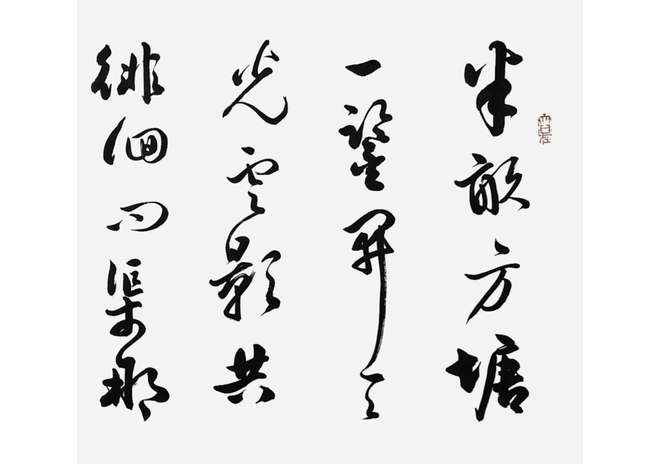 半畝方塘
一鑒開天
光雲影共
徘徊問渠那